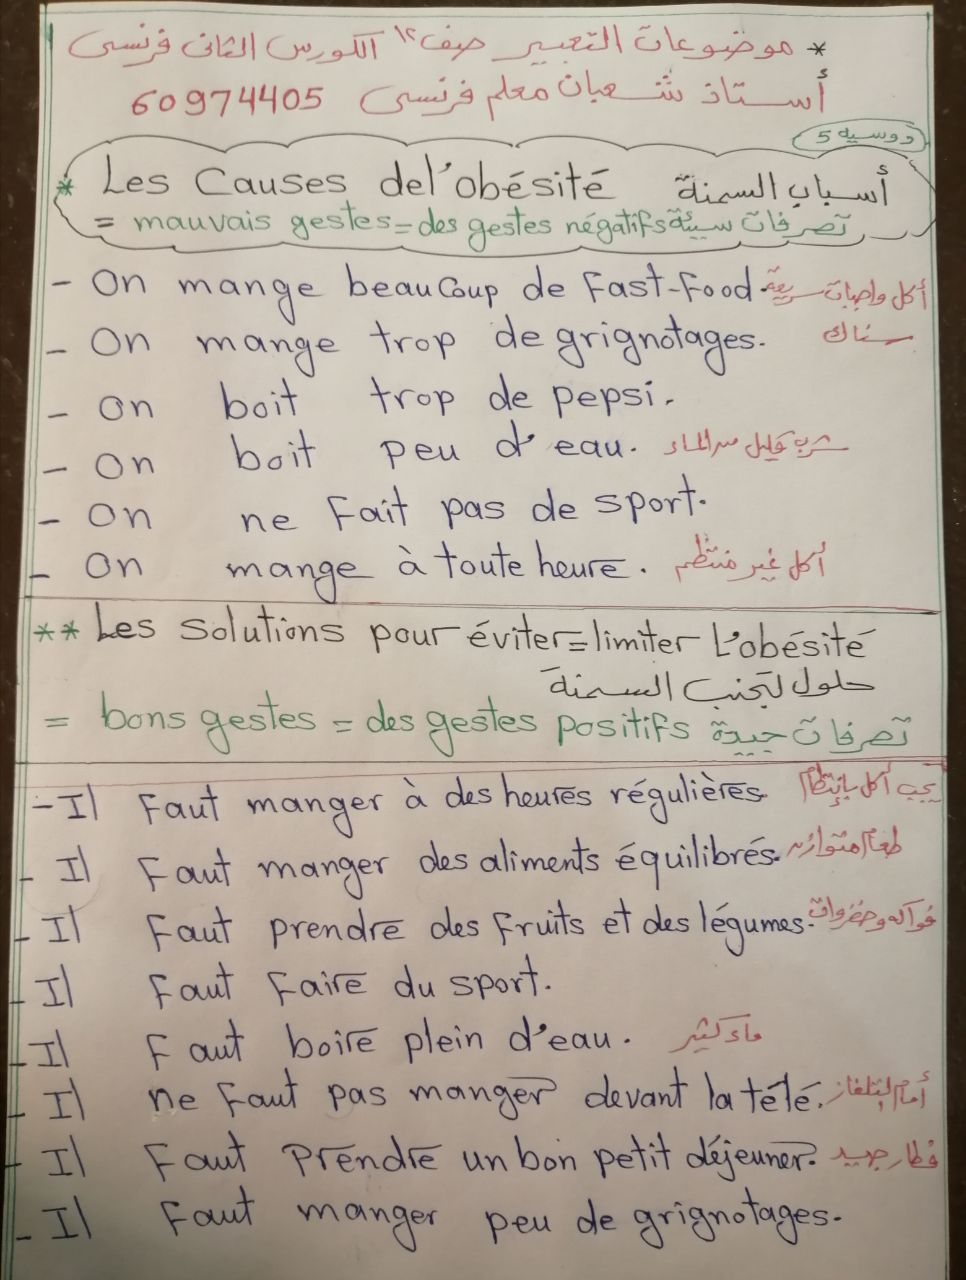 * موضوعات التعبير صف ١٢ الكورس الثانى فرنسى
أستاذ شعبان معلم فرنسى 60974405
دوسيه 5
* Les Causes de l'obésité أسباب السمنة
= mauvais gestes = des gestes négatifs تصرفات سيئة
- On mange beaucoup de Fast-Food. أكل واجبات سريعة
- On mange trop de grignotages. سناك
- On boit trop de pepsi.
- On boit peu d'eau. شرب قليل من الماء
- On ne Fait pas de sport.
- On mange à toute heure. أكل غير منتظم
** Les solutions pour éviter = limiter L'obésité
حلول لتجنب السمنة
= bons gestes = des gestes positifs تصرفات جيدة
- Il Faut manger à des heures régulières. يجب أكل بإنتظام
- Il Faut manger des aliments équilibrés. طعام متوازن
- Il Faut prendre des Fruits et des légumes. فواكه وخضروات
- Il Faut Faire du sport.
- Il Faut boire plein d'eau. ماء كثير
- Il ne Faut pas manger devant la télé. أمام التلفاز
- Il Faut Prendre un bon petit déjeuner. فطار جيد
- Il Faut manger peu de grignotages.